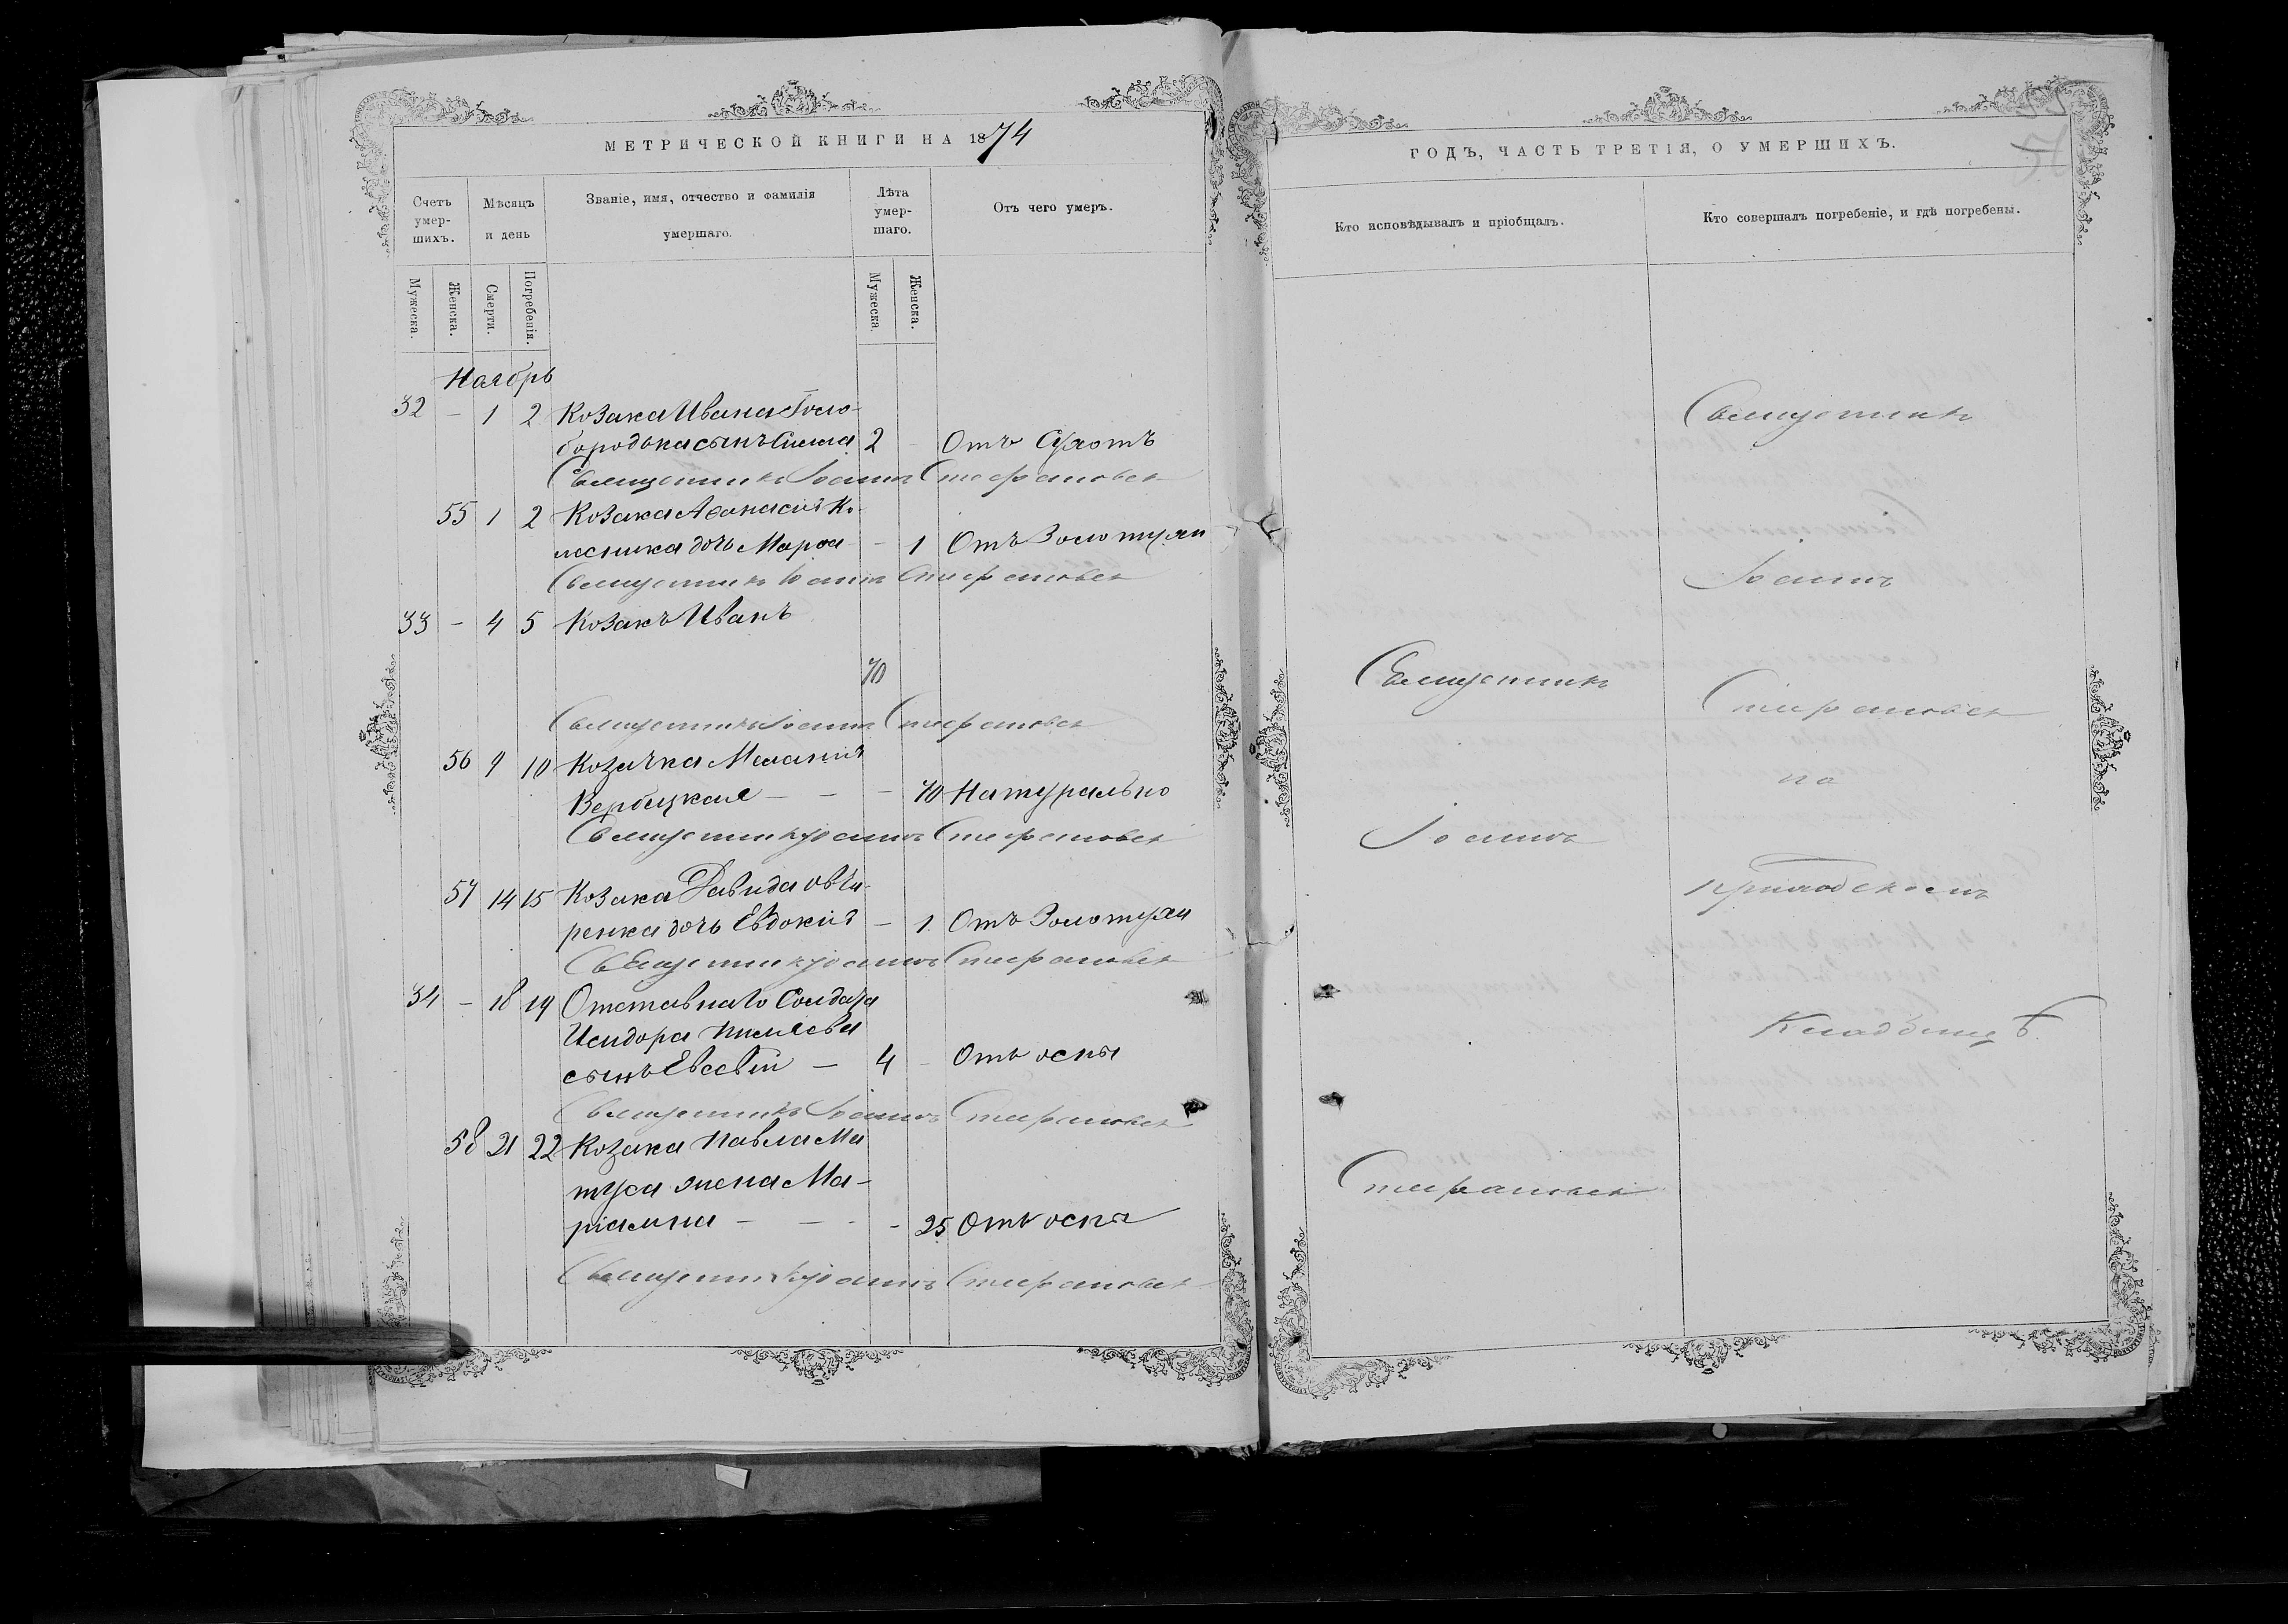 МЕТРИЧЕСКОЙ КНИГИ НА 1874
Счетъ умер-шихъ.
Мѣсяцъ и день
Званіе, имя, отчество и фамилія умершаго.
Лѣта умер-шаго.
Отъ чего умеръ.
Мужеска.
Женска.
Смерти.
Погребенія.
Мужеска.
Женска.
Ноябрь
32 – 1 2 Козака Ивана Голо-
бородька сынъ 2 – Отъ Сухотъ
Священникъ Іоаннъ Стефановск
55 1 2 Козака Афанасія Ко-
лесника дочь Марфа – 1 Отъ Золотухи
Священникъ Іоаннъ Стефановск
33 – 4 5 Козакъ Иванъ
70
Священникъ Іоаннъ Стефановск
56 9 10 Козачка Меланія
Вербицкая – – – 70 Натурально
Священникъ Іоаннъ Стефановск
57 14 15 Козака Давида Овча-
ренка дочь Евдокія – 1 Отъ Золотухи
Священникъ Іоаннъ Стефановск
34 – 18 19 Отставнаго Солдата
Исидора
сынъ Евсевій – 4 – Отъ оспы
Священникъ Іоаннъ Стефановск
58 21 22 Козака Павла Ма
туса жена Ма-
ріамна – – – – 25 Отъ оспы
Священникъ Іоаннъ Стефановск
ГОДЪ, ЧАСТЬ ТРЕТІЯ, О УМЕРШИХЪ.
Кто исповѣдывалъ и пріобщалъ.
Кто совершалъ погребеніе, и гдѣ погребены.
Священникъ
Іоаннъ
Стефановск
Священникъ
Іоаннъ
Стефановск
на
приходскомъ
Кладбищѣ